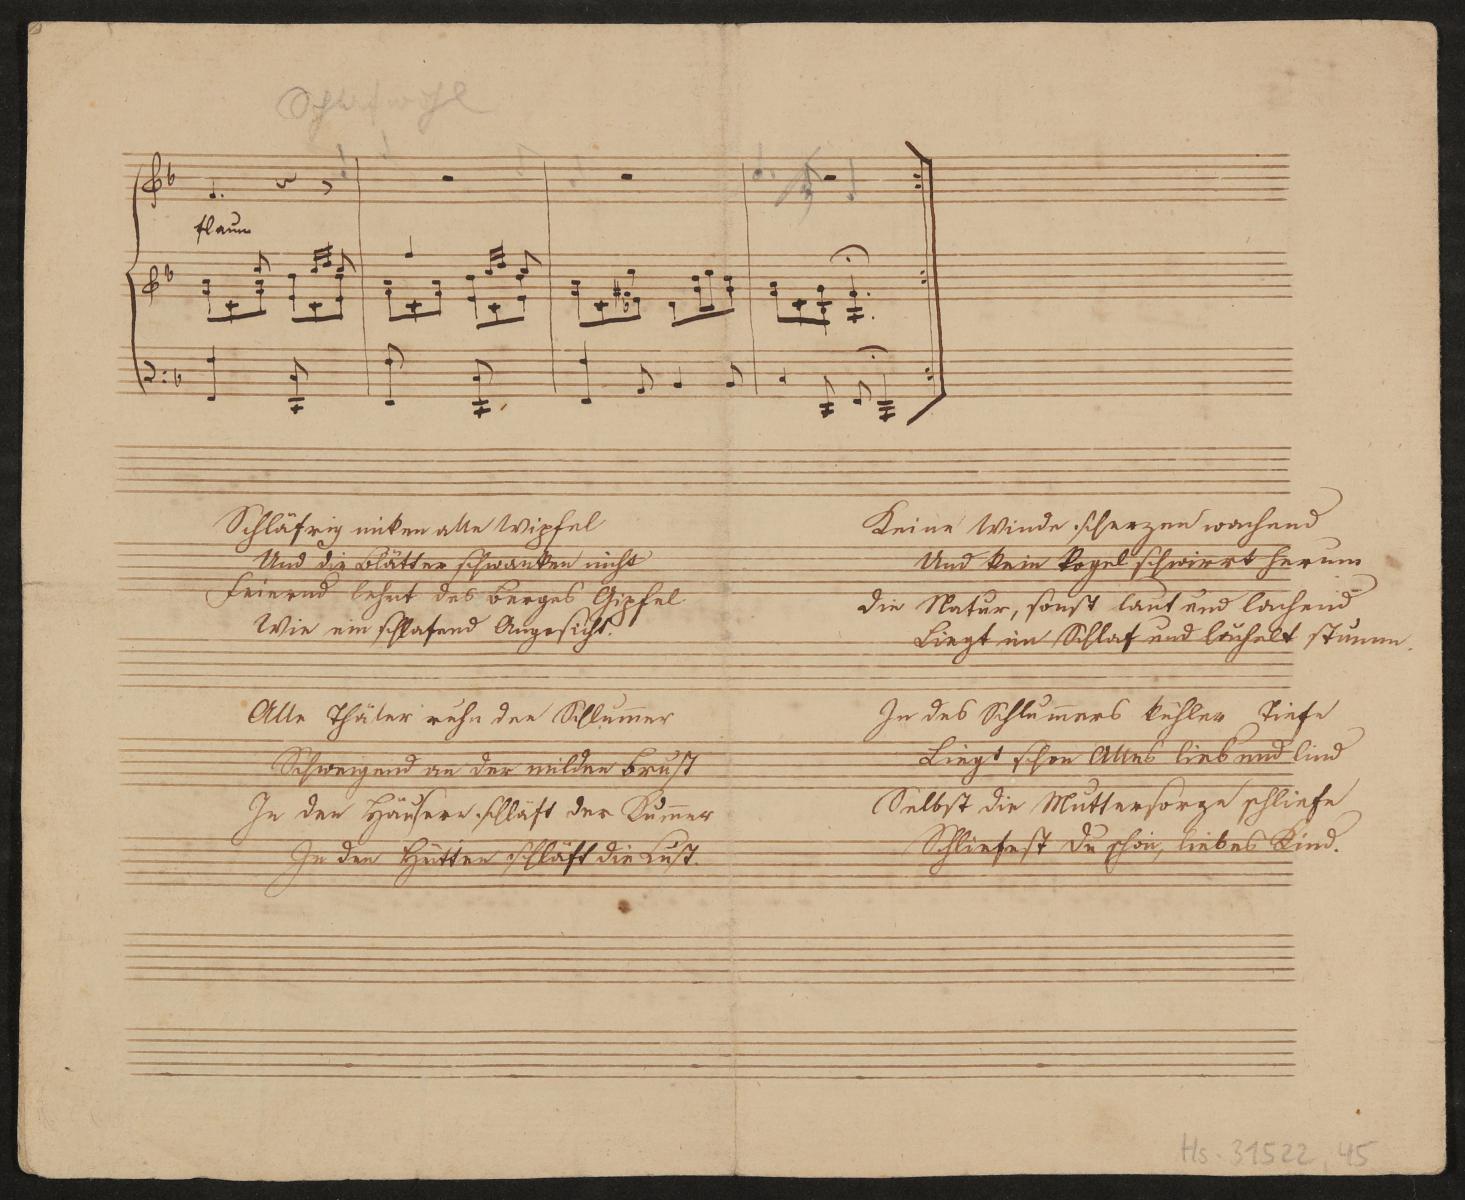 flaum
Schläfrig niken alle Wipfel
Und die Blätter schwanken nicht
Feiernd lehnt des Berges Gipfel
Wie ein schlafend Angesicht.
Alle Thäler ruhn den Schlummer
Schweigend an der milden Brust
In den Häusern schläft der Kummer
In den Hütten schläft die Lust.
Keine Winde scherzen wachend
Und kein Vogel schwirrt herum
Die Natur, sonst laut und lachend
Liegt im Schlaf und lächelt stumm.
In des Schlummers kühler Tiefe
Liegt schon Alles lieb und lind
Selbst die Muttersorge schliefe
Schliefest Du schon, liebes Kind.
Hs. 31522, 45